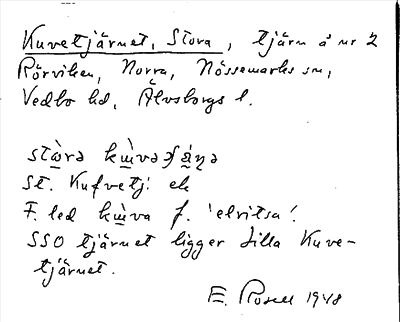 Kuvetjärnet, Stora, tjärn å nr 2
Rörviken, Norra, Nössemarks sn,
Vedbo hd, Älvsborgs l.
stѡ̀rə kɯ̀və
St. Kufvetj: ek
F. led kɯ̀va f. 'elritsa'.
SSO tjärnet ligger Lilla Kuve-
tjärnet.
E. Rosell 1948